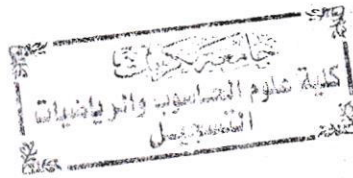 جامعة تكريت
كلية علوم الحاسوب والرياضيات
التسجيل